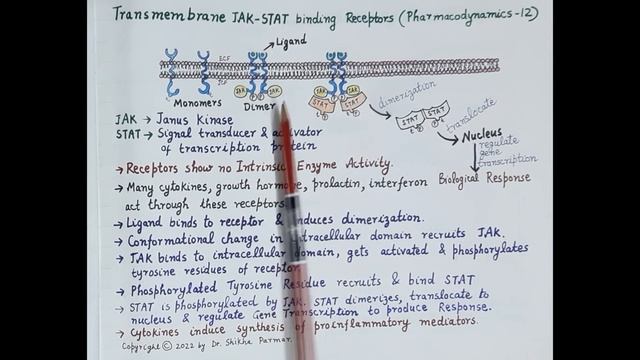 Transmembrane JAK-STAT binding Receptors (Pharmacodynamics-12)
Ligand
ECF
ICF
JAK P P JAK
JAK P P JAK
STAT STAT
P P
dimerization
STAT STAT
P P
translocate
Monomers
Dimer
Nucleus
regulate
gene
transcription
Biological Response
JAK → Janus Kinase
STAT → Signal transducer & activator
of transcription protein
→ Receptors show no Intrinsic Enzyme Activity.
→ Many cytokines, growth hormone, prolactin, interferon
act through these receptors
→ Ligand binds to receptor & induces dimerization.
→ Conformational change in intracellular domain recruits JAK.
→ JAK binds to intracellular domain, gets activated & phosphorylates
tyrosine residues of receptor
→ Phosphorylated Tyrosine Residue recruits & bind STAT
→ STAT is phosphorylated by JAK. STAT dimerizes, translocate to
nucleus & regulate Gene Transcription to produce Response.
→ Cytokines induce synthesis of proinflammatory mediators.
Copyright © 2022 by Dr. Shikha Parmar